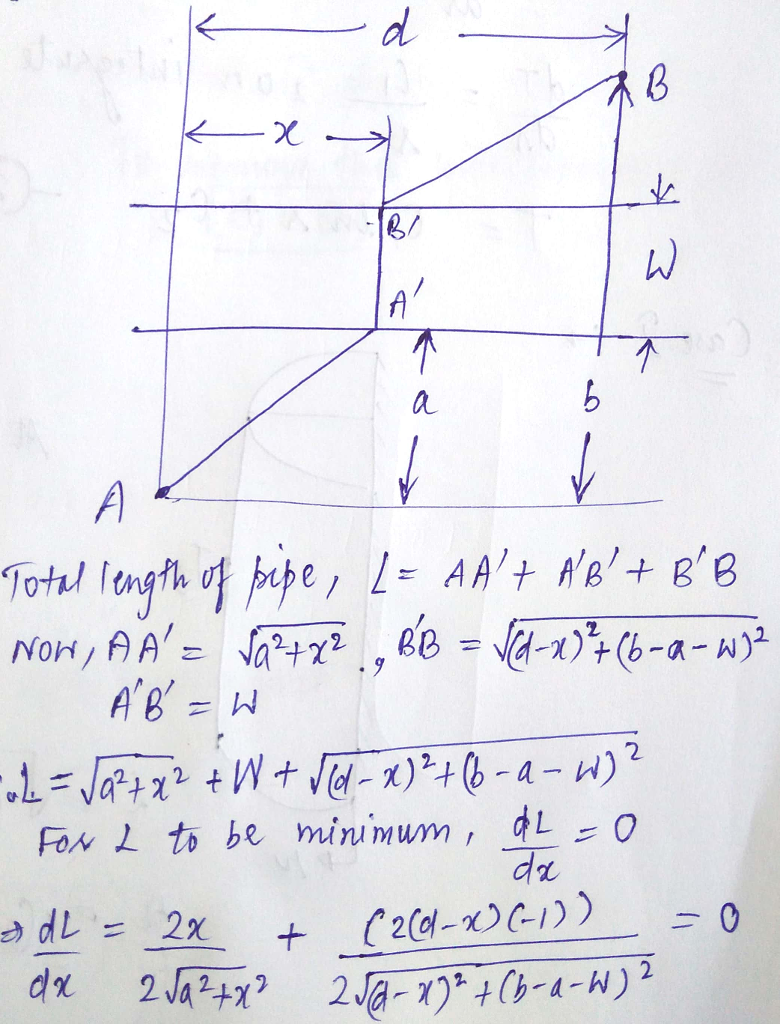 d
x
B
B'
W
A'
a
b
A
Total length of pipe, L = AA' + A'B' + B'B
Now, AA' = √(a²+x²) , B'B = √((d-x)²+(b-a-W)²)
A'B' = W
∴ L = √(a²+x²) + W + √((d-x)²+(b-a-W)²)
For L to be minimum, dL/dx = 0
⇒ dL/dx = 2x / 2√(a²+x²) + (2(d-x)(-1)) / 2√((d-x)²+(b-a-W)²) = 0